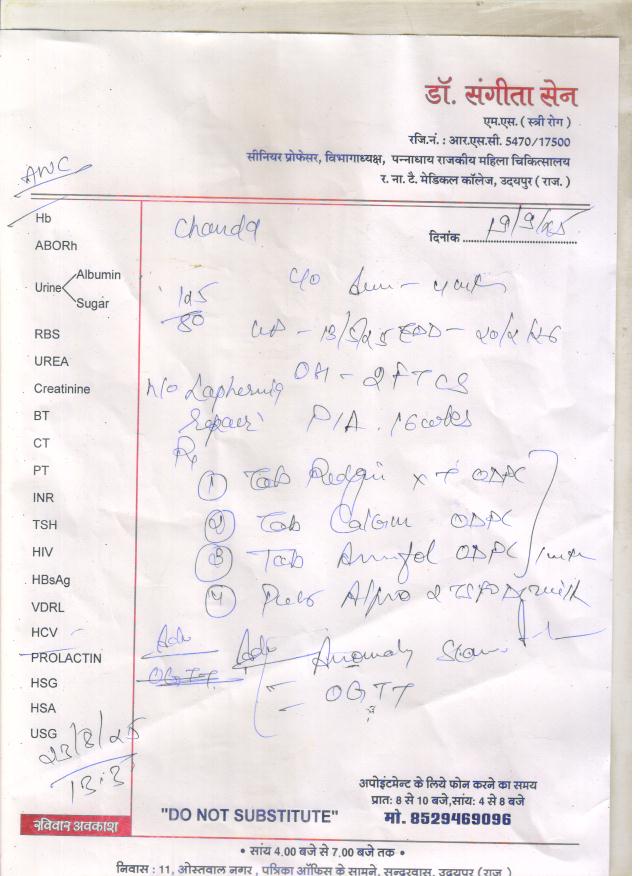 डॉ. संगीता सेन
एम.एस. ( स्त्री रोग )
रजि.नं. : आर.एस.सी. 5470/17500
सीनियर प्रोफेसर, विभागाध्यक्ष, पन्नाधाय राजकीय महिला चिकित्सालय
र. ना. टै. मेडिकल कॉलेज, उदयपुर ( राज. )
ANC
Hb
Chanda
दिनांक 19/9/25
ABORh
Urine Albumin
Sugar
c/o
RBS
UREA
- 13/5/25 EDD - 20/2/26
Creatinine
OH - 2 FTCS
BT
Repair P/A.
CT
Rx
PT
① Tab ODPC
INR
② Tab ODPC
TSH
③ Tab ODPC
HIV
④ milk
HBsAg
VDRL
HCV
Adv Adv Anomaly Scan
PROLACTIN
OGTT
HSG
- OGTT
HSA
USG
23/8/25
अपोइंटमेन्ट के लिये फोन करने का समय
प्रातः 8 से 10 बजे,सांय: 4 से 8 बजे
"DO NOT SUBSTITUTE"
मो. 8529469096
रविवार अवकाश
• सांय 4.00 बजे से 7.00 बजे तक •
निवास : 11, ओस्तवाल नगर , पत्रिका ऑफिस के सामने, सुन्दरवास, उदयपुर ( राज. )